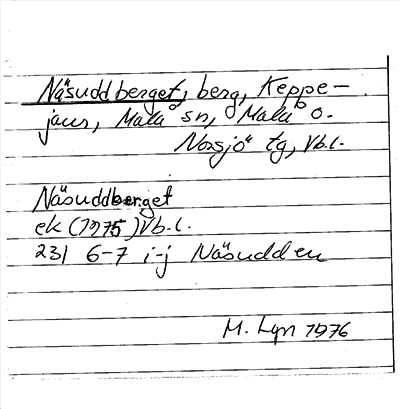 Näsuddberget, berg, Keppe-
jaur, Malå sn, Malå o.
Norsjö tg, Vb.l.
Näsuddberget
ek (1975) Vb.l.
231 6-7 i-j Näsudden
M. Lyn 1976